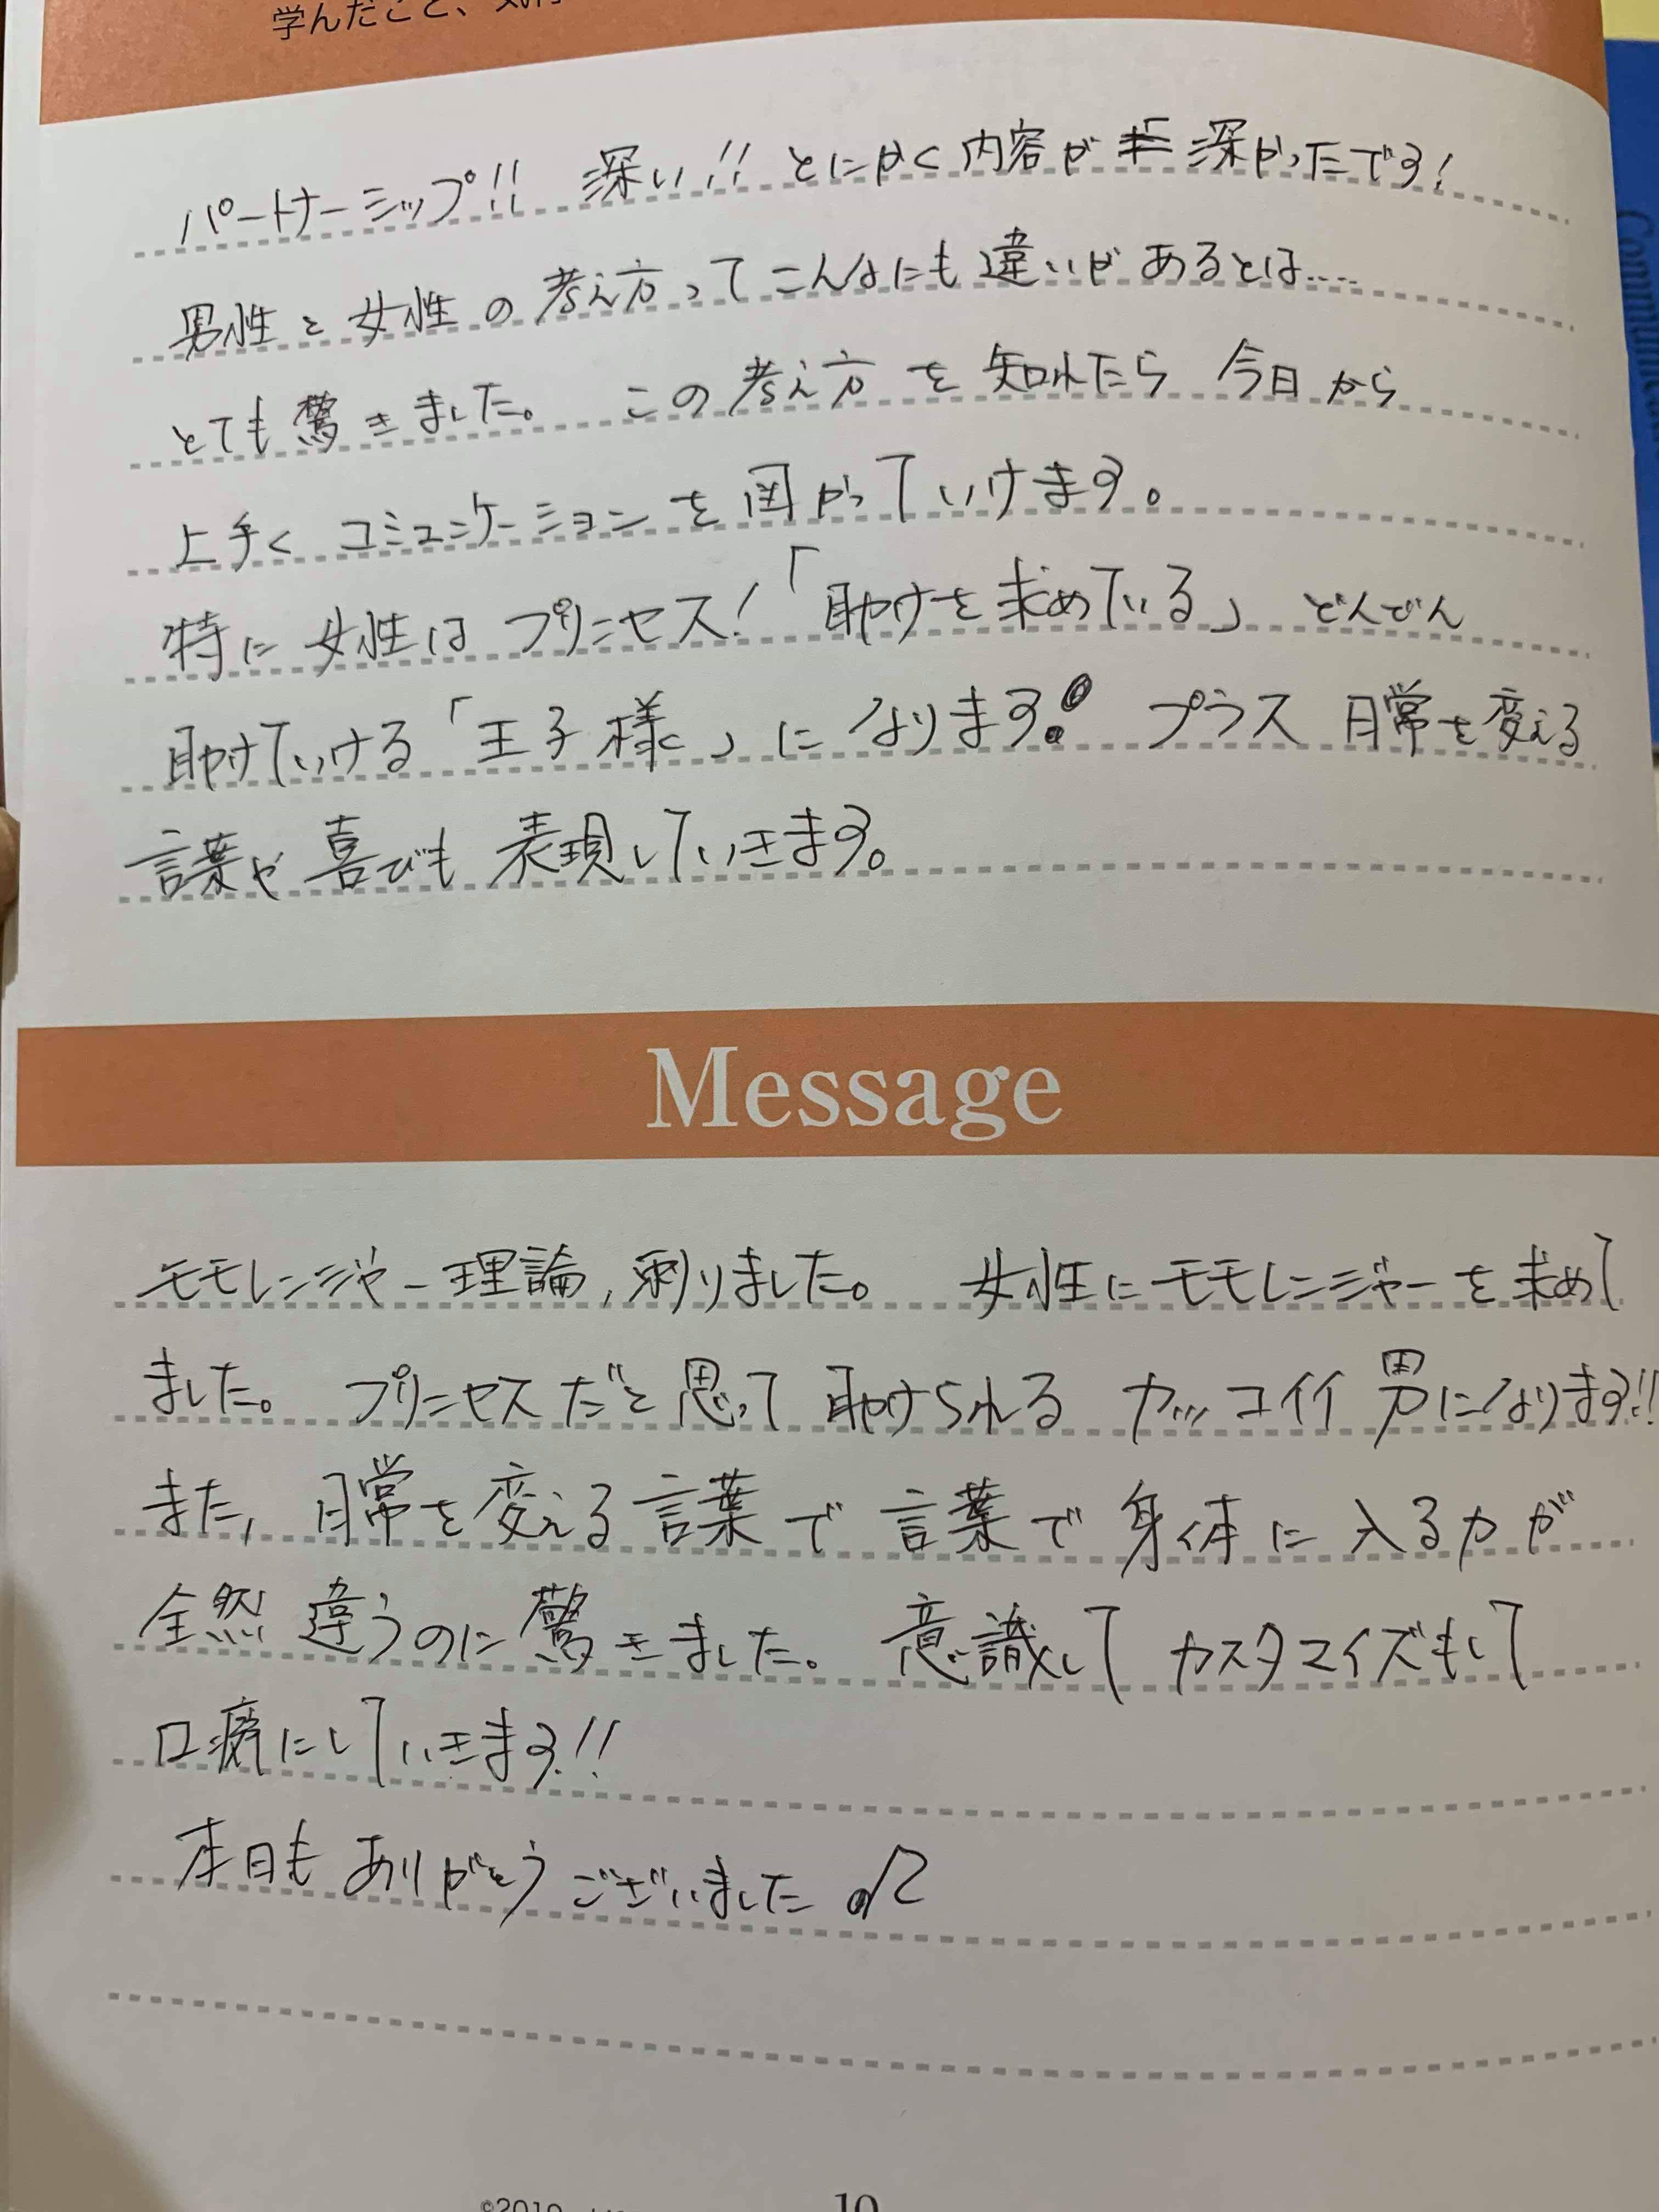 学んだこと、気付
パートナーシップ!! 深い!! とにかく内容が 深かったです!
男性と女性の考え方ってこんなにも違いがあるとは....
とても驚きました。 この考え方を知れたら 今日から
上手く コミュニケーションを図かっていけます。
特に女性はプリンセス!「助けを求めている」 どんどん
助けていける「王子様」になります! プラス 日常を変える
言葉や喜びも表現していきます。
Message
モモレンジャー理論, 刺りました。 女性にモモレンジャーを求めて
ました。 プリンセスだと思って助けられるカッコイイ男になります!!
また, 日常を変える言葉で言葉で身体に入る力が
全然違うのに驚きました。 意識してカスタマイズもして
口癖にしていきます!!
本日もありがとうございました♫
©2019
10